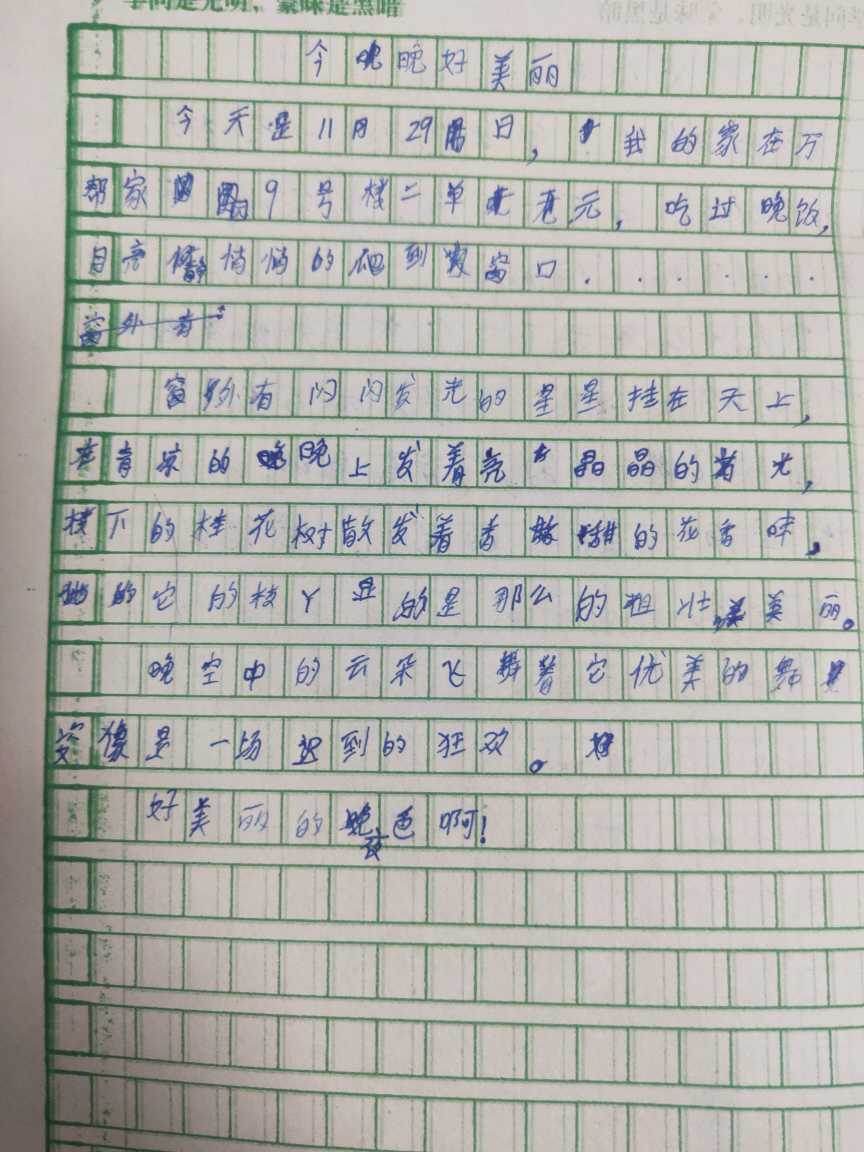 学问是光明，蒙昧是黑暗
今晚晚好美丽
今天是11月29日，我的家在万
帮家园9号楼二单元，吃过晚饭，
月亮静悄悄的爬到窗口......
窗外有
窗外有闪闪发光的星星挂在天上，
在青凉的晚上发着亮晶晶的光，
楼下的桂花树散发着香甜的花香味，
它的枝丫显的是那么的粗壮美丽。
晚空中的云朵飞舞着它优美的舞
姿像是一场迟到的狂欢。
好美丽的夜色啊！